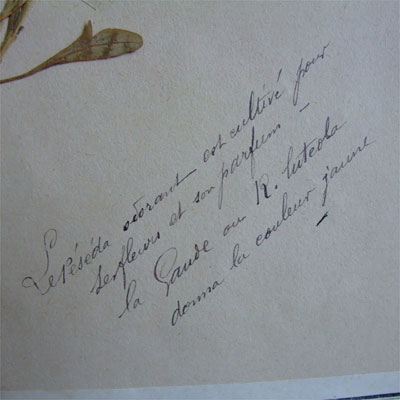 Le réséda odorant est cultivé pour
ses fleurs et son parfum –
la Gaude ou R. luteola
donna la couleur jaune